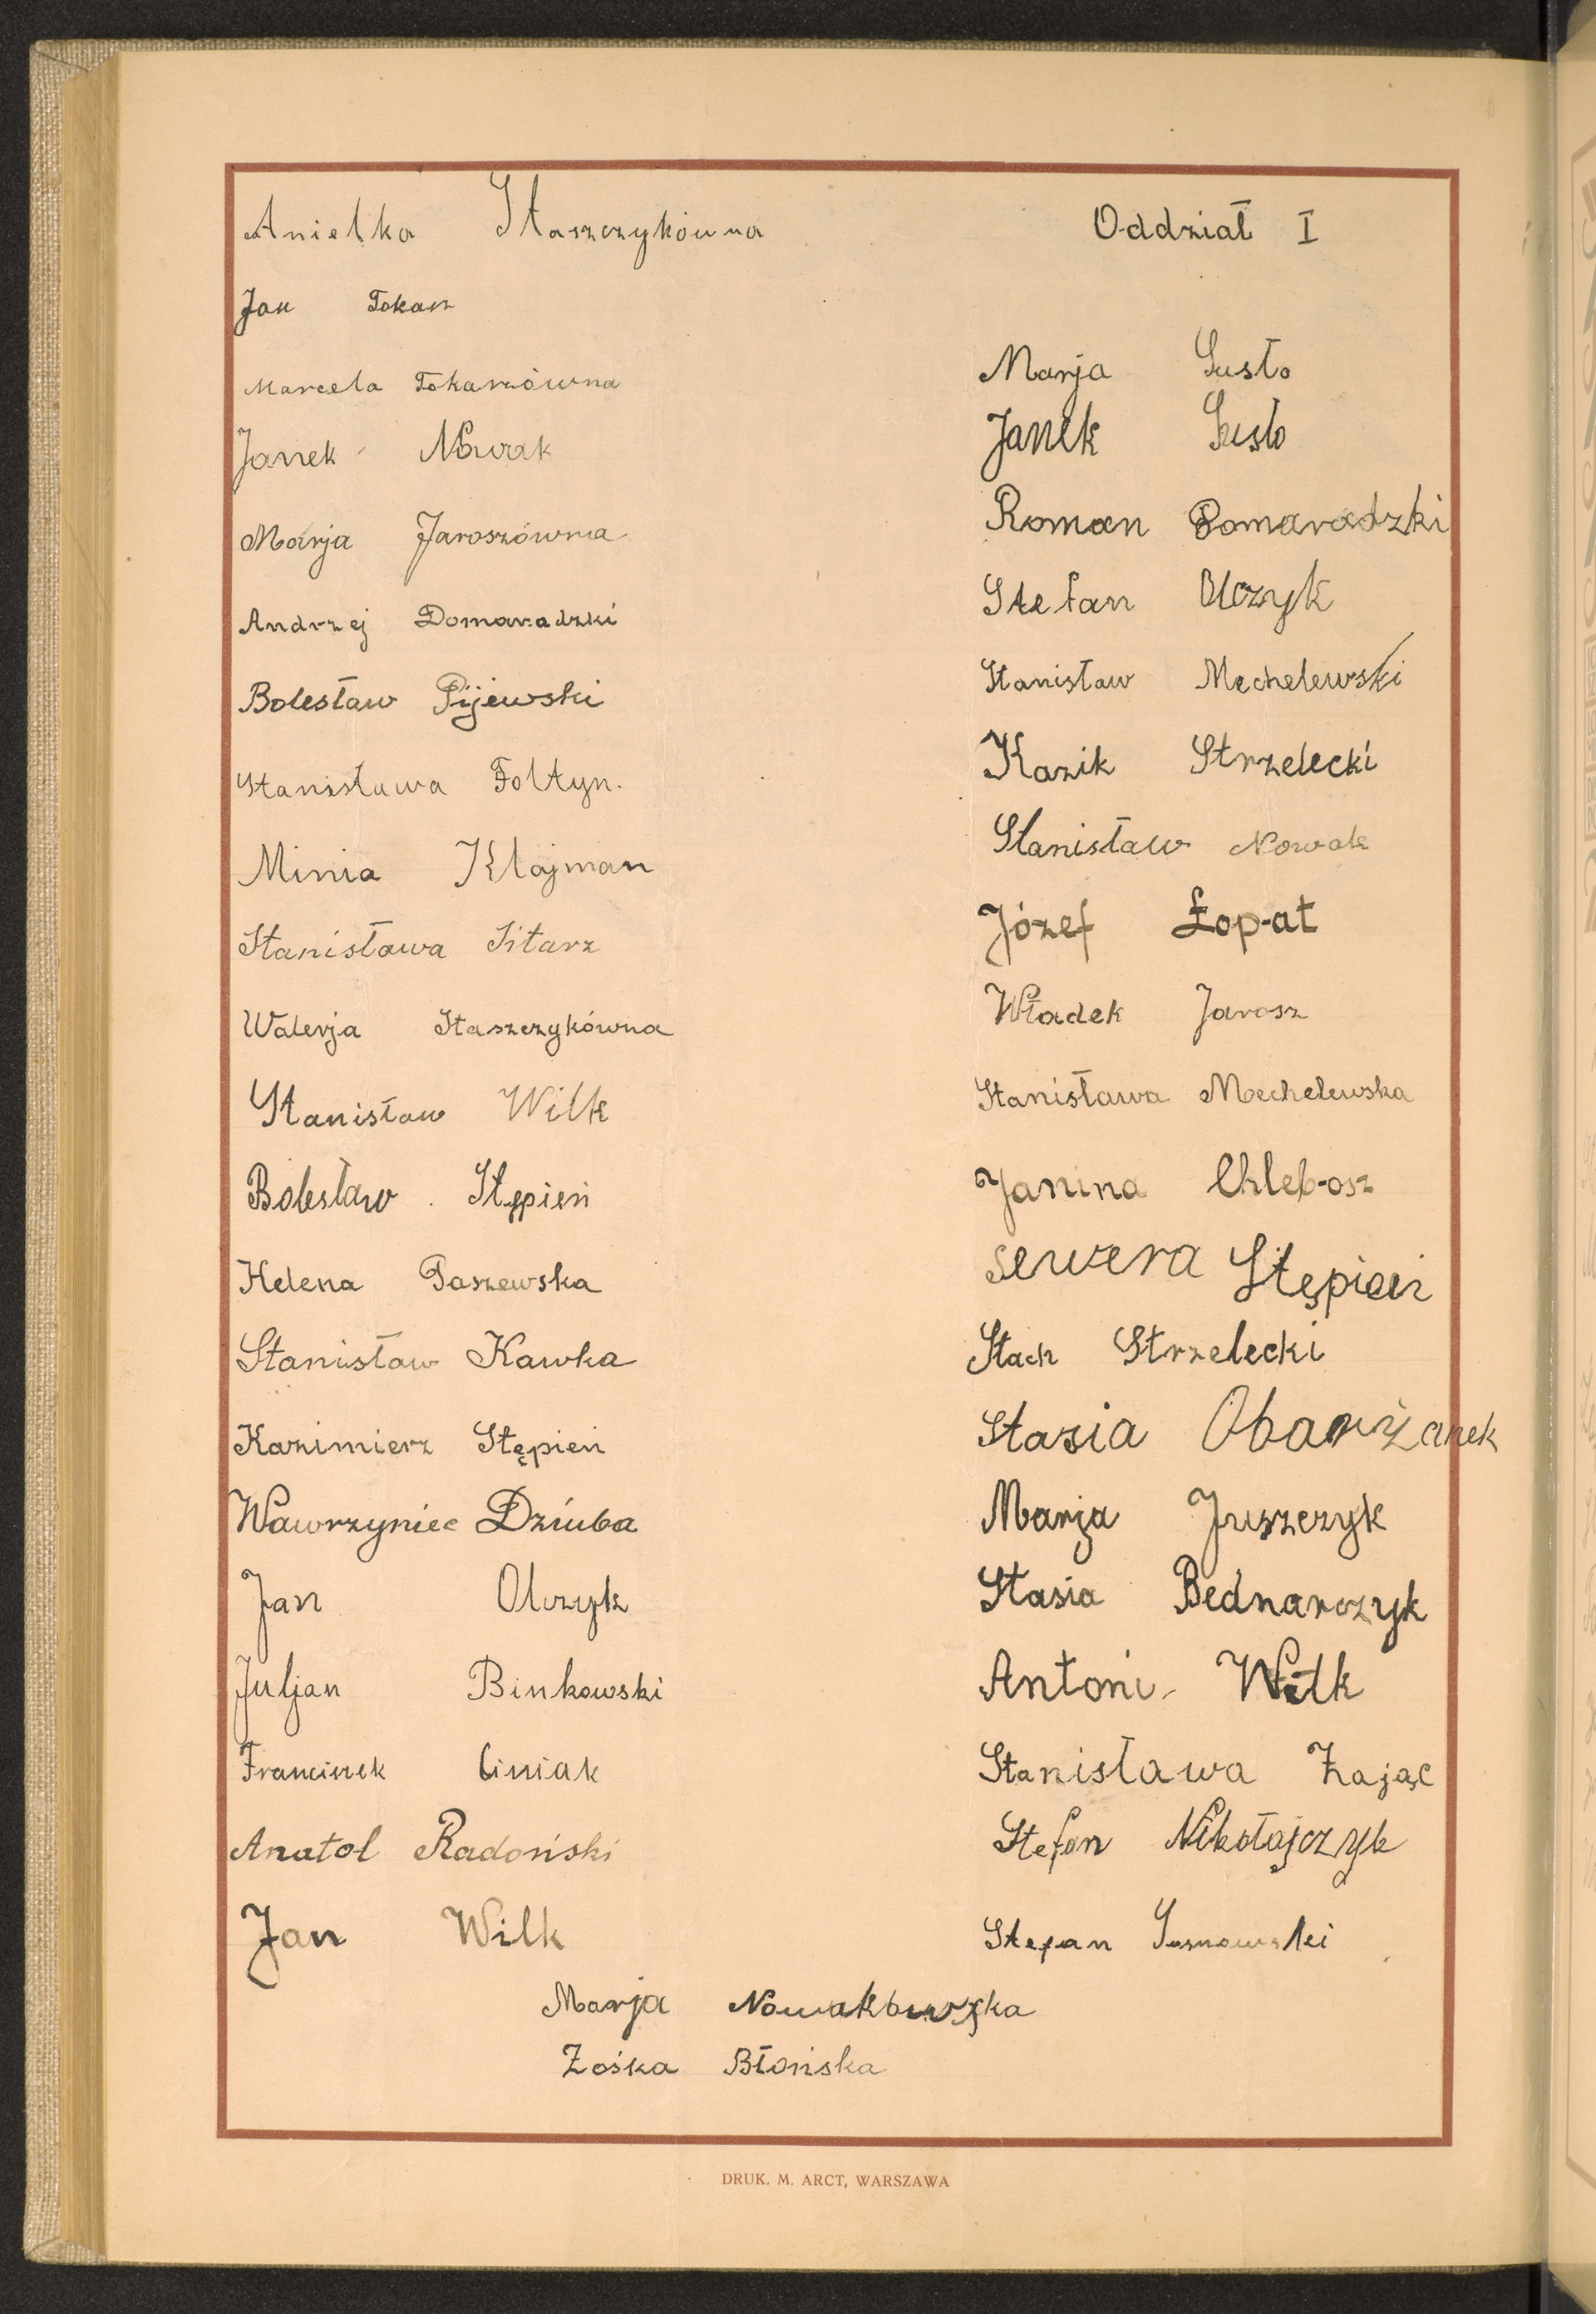 Anielka Staszczykówna
Jan Tokarz
Marcela Tokarzówna
Janek Nowak
Marja Jaroszówna
Andrzej Domaradzki
Bolesław Pijewski
Stanisława Foltyn.
Minia Klajman
Stanisława Sitarz
Walerja Staszczykówna
Stanisław Wilk
Bolesław Stępień
Helena Paszewska
Stanisław Kawka
Kazimierz Stępień
Wawrzyniec Dziuba
Jan Olczyk
Juljan Binkowski
Franciszek Liniak
Anatol Radoński
Jan Wilk
Oddział I
Marja Susło
Janek Susło
Roman Domaradzki
Stefan Olczyk
Stanisław Mechelewski
Kazik Strzelecki
Stanisław Nowak
Józef Łopat
Władek Jarosz
Stanisława Mechelewska
Janina Chlebosz
Sewera Stępień
Stach Strzelecki
Stasia Obarzanek
Marja Juszczyk
Stasia Bednarczyk
Antoni Wilk
Stanisława Zając
Stefan Nikołajczyk
Stefan Sosnowski
Marja Nowakowska
Zośka Błońska
DRUK. M. ARCT, WARSZAWA